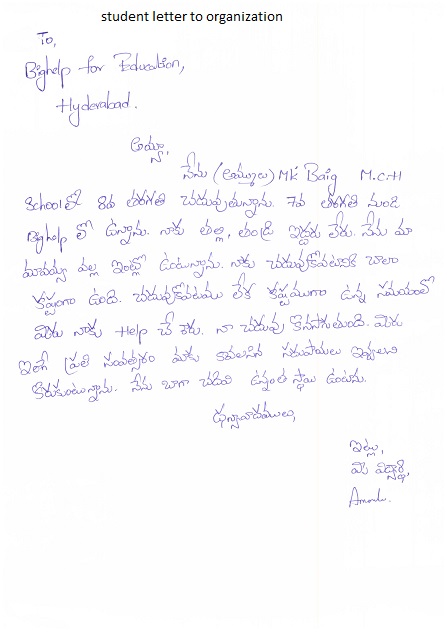 student letter to organization
To,
Bighelp for Education,
Hyderabad.
అయ్యా,
నేను (అమ్ములు) MK Baig M.C.H
School లో 8వ తరగతి చదువుతున్నాను. 7వ తరగతి నుండి
Bighelp లో ఉన్నాను. నాకు తల్లి, తండ్రి ఇద్దరు లేరు. నేను మా
మామయ్య వల్ల ఇంట్లో ఉంటున్నాను. నాకు చదువుకోవటానికి చాలా
కష్టంగా ఉంది. చదువుకోవటము లేక కష్టముగా ఉన్న సమయంలో
మీరు నాకు Help చే శారు. నా చదువు కొనసాగుతుంది. మీరు
ఇలాగే ప్రతి సంవత్సరం మాకు కావలసిన సదుపాయలు ఇవ్వాలని
కోరుకుంటున్నాను. నేను బాగా చదివి ఉన్నంత స్థాయి ఉంటాను.
ధన్యావాదములు,
ఇట్లు,
మీ విద్యార్థి,